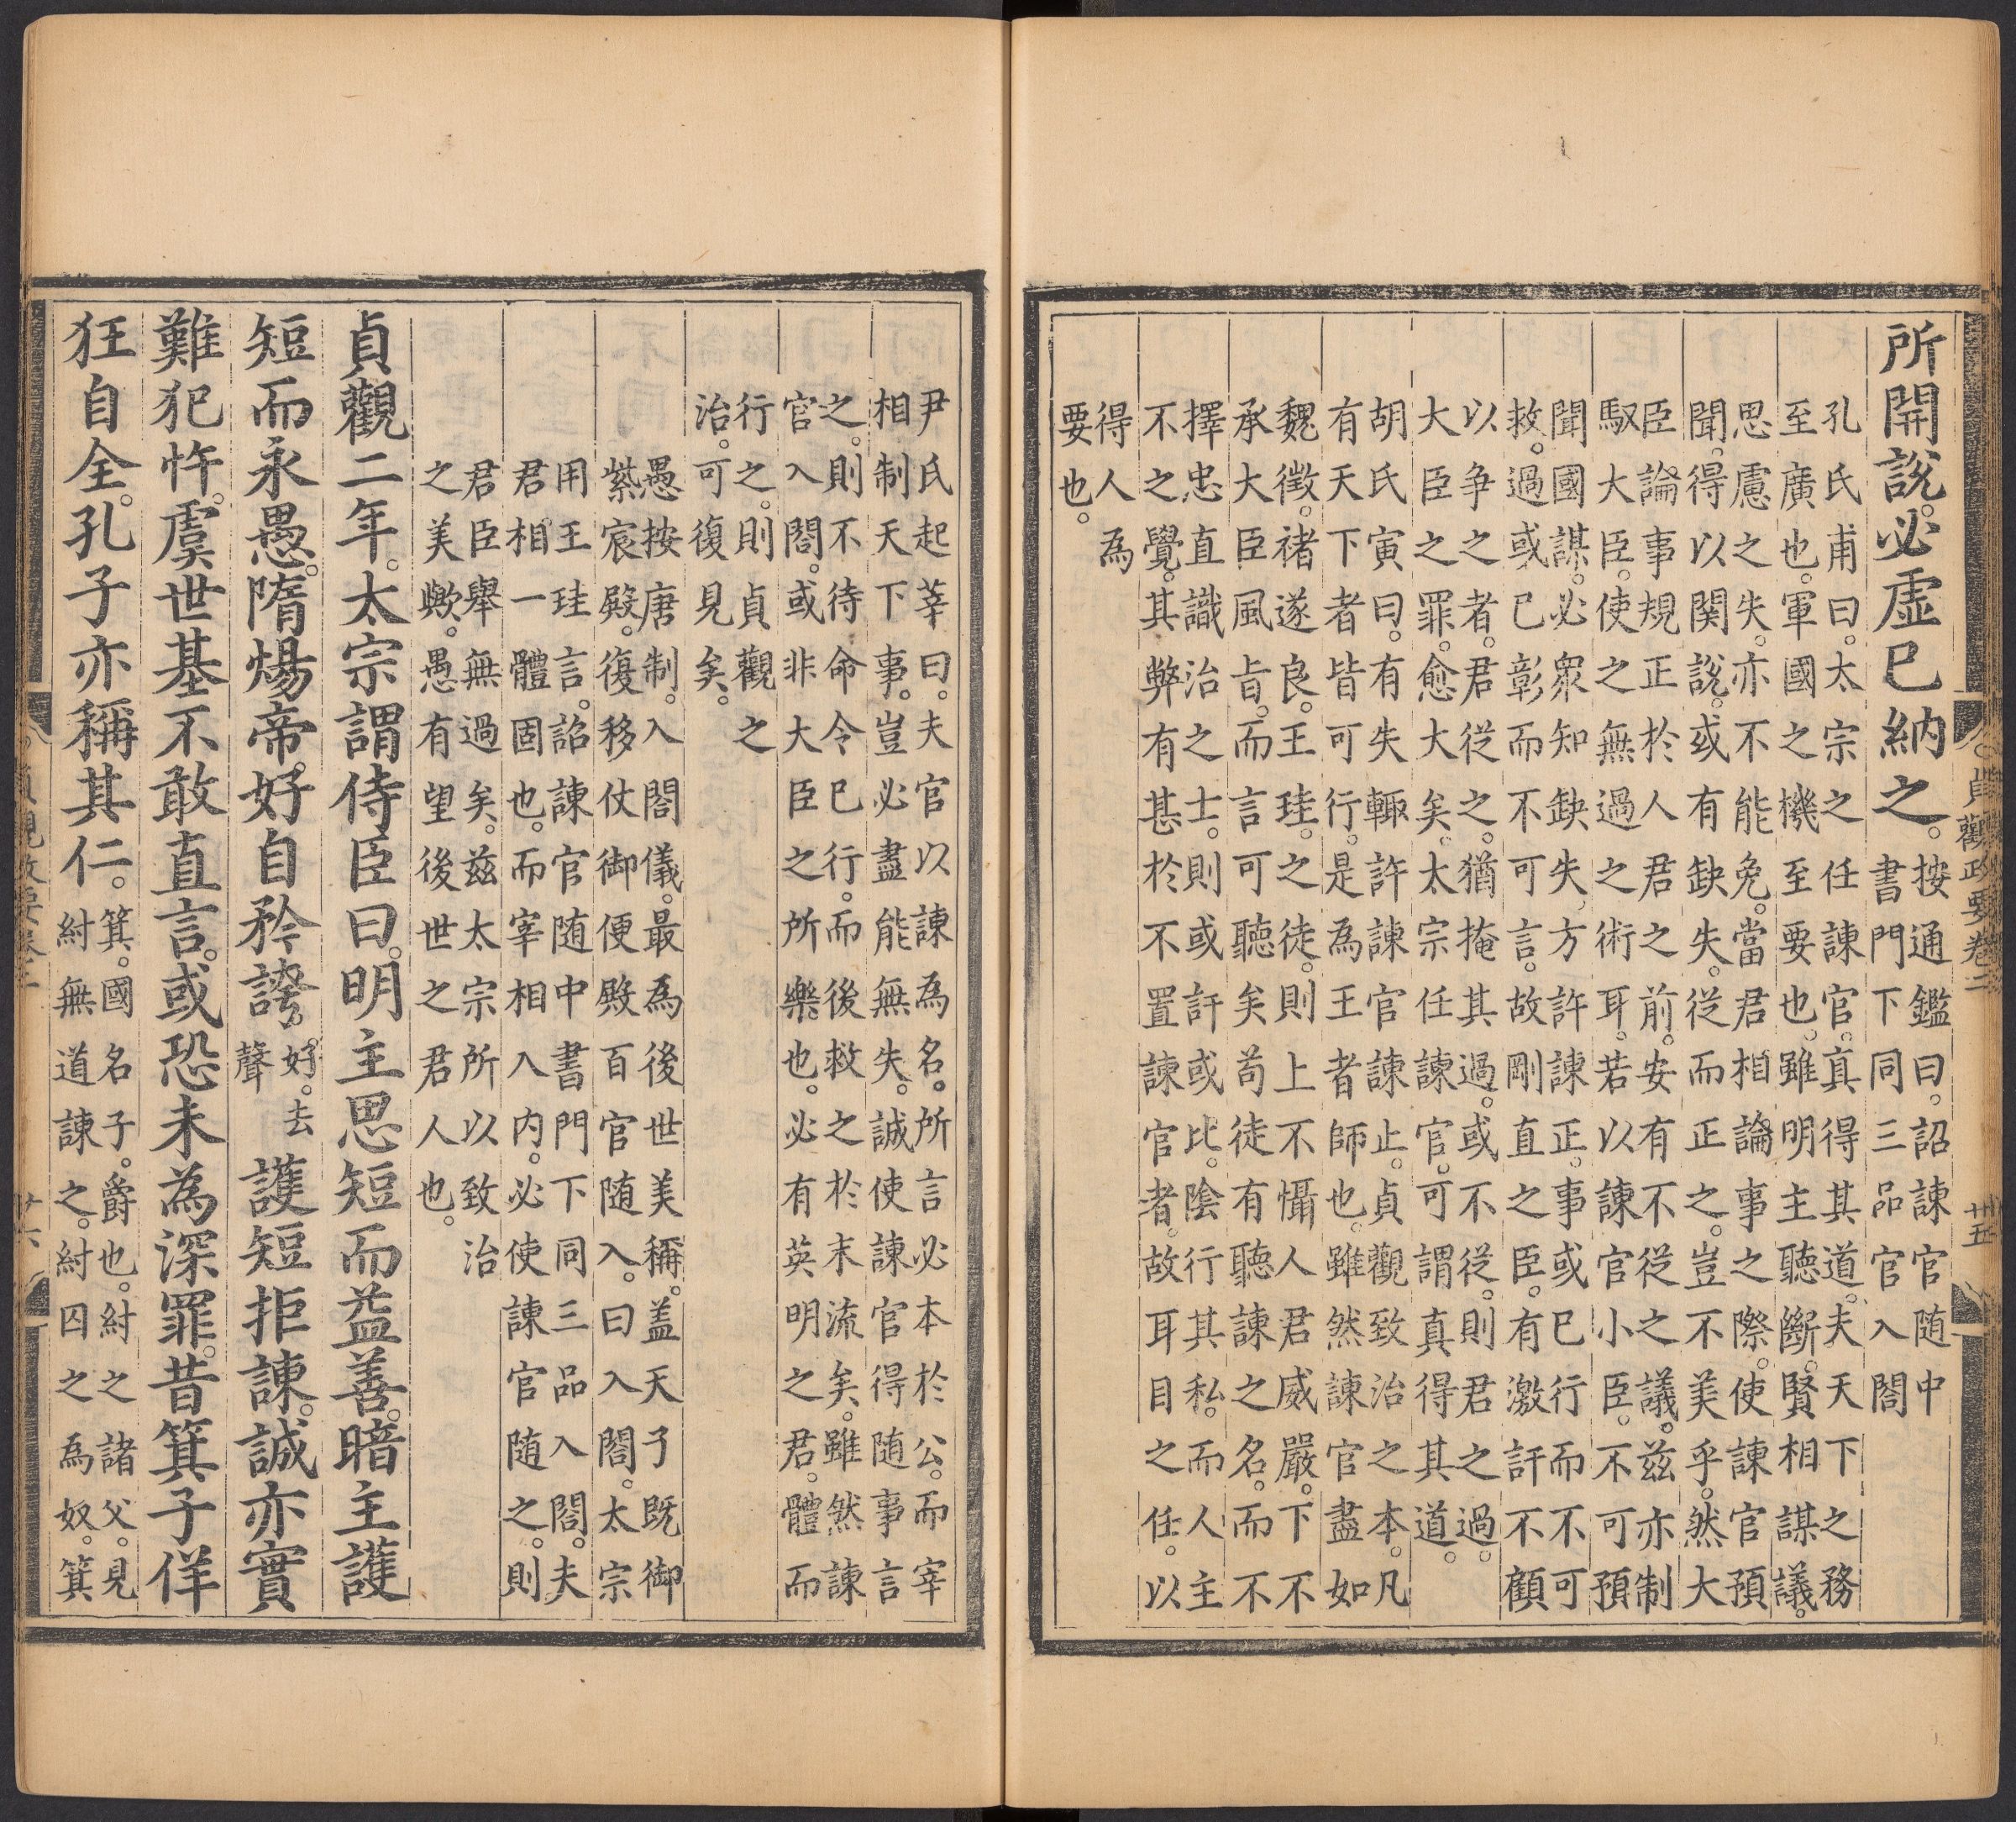 所開說。必虛已納之。
按通鑑曰。詔諫官随中
書門下同三品官入閤
孔氏甫曰。太宗之任諫官。真得其道。夫天下之務
至廣也。軍國之機至要也。雖明主聽斷。賢相謀議。
思慮之失。亦不能免。當君相論事之際。使諫官預
聞。得以関說。或有缺失。從而正之。豈不美乎。然大
臣論事規正於人君之前。安有不從之議。兹亦制
馭大臣。使之無過之術耳。若以諫官小臣。不可預
聞國謀。必衆知缺失。方許諫正。事或已行而不可
救。過或已彰而不可言。故剛直之臣。有激訐不顧
以争之者。君從之。猶掩其過。或不從。則君之過。
大臣之罪。愈大矣。太宗任諫官。可謂真得其道。
胡氏寅曰。有失輙許諫官諫止。貞觀致治之本。凡
有天下者皆可行。是為王者師也。雖然諫官盡如
魏徵。禇遂良。王珪。之徒。則上不懾人君威嚴。下不
承大臣風旨。而言可聽矣。苟徒有聽諫之名。而不
擇忠直識治之士。則或訐或比。陰行其私。而人主
不之覺。其弊有甚於不置諫官者。故耳目之任。以
得人為
要也。
尹氏起莘曰。夫官以諫為名。所言必本於公。而宰
相制天下事。豈必盡能無失。誠使諫官得随事言
之。則不待命令已行。而後救之於末流矣。雖然諫
官入閤。或非大臣之所樂也。必有英明之君。體而
行之。則貞觀之
治。可復見矣。
愚按唐制。入閤儀。最為後世美稱。盖天子既御
紫宸殿。復移仗御便殿百官随入。曰入閤。太宗
用王珪言。詔諫官随中書門下同三品入閤。夫
君相一體固也。而宰相入内。必使諫官随之。則
君臣舉無過矣。兹太宗所以致治
之美歟。愚有望後世之君人也。
貞觀二年。太宗謂侍臣曰。明主思短而益善。暗主護
短而永愚。隋煬帝。好自矜誇。
好。去
聲
護短拒諫。誠亦實
難犯忤。虞世基不敢直言。或恐未為深罪。昔箕子佯
狂自全。孔子亦稱其仁。
箕。國名子。爵也。紂之諸父。見
紂無道諫之。紂囚之為奴。箕
貞觀政要卷二
廿五
廿六